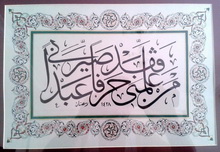 من علمني حرفا فقد صيرني عبدا